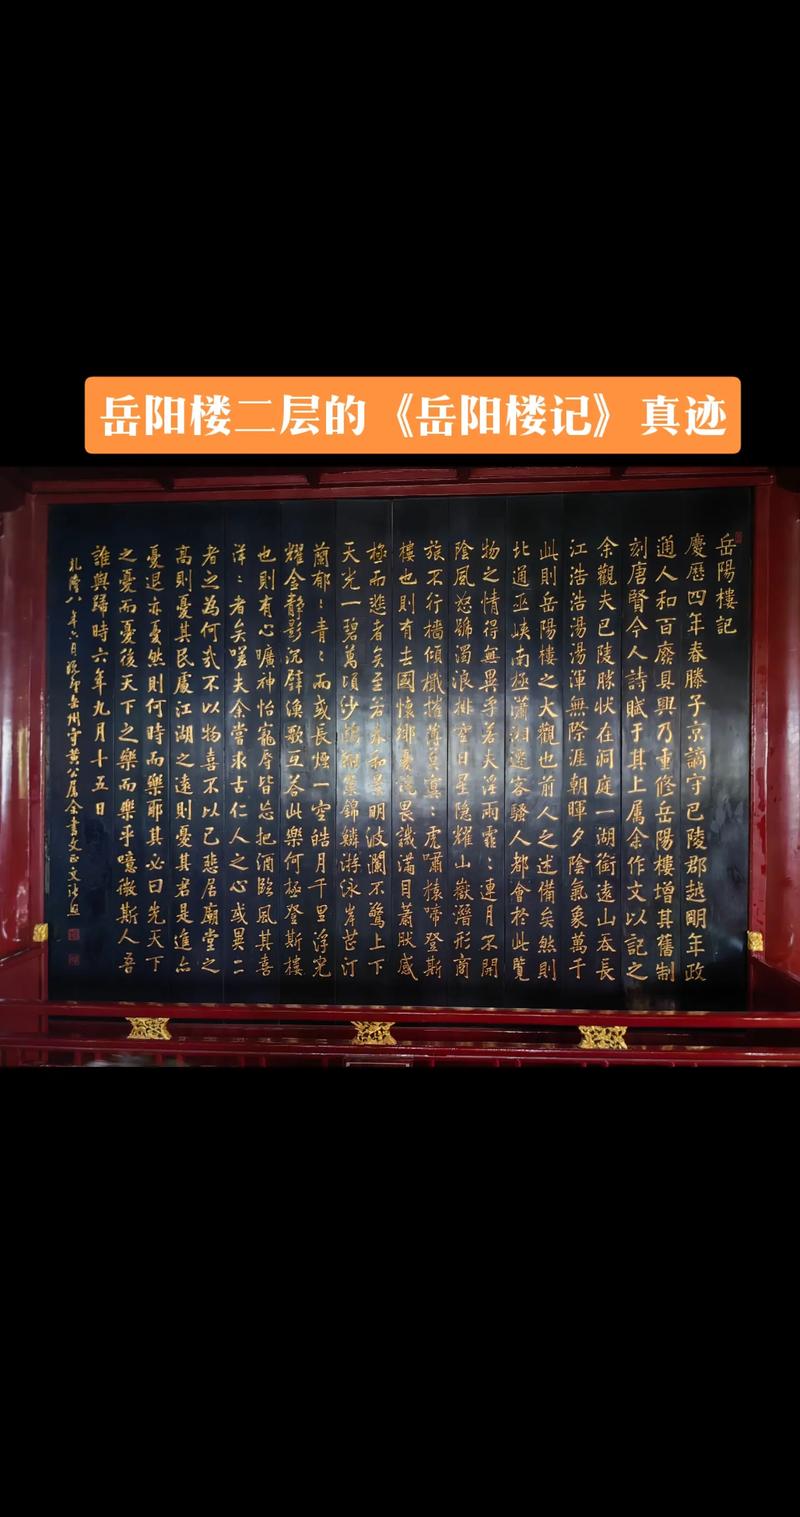 岳阳楼二层的《岳阳楼记》真迹
岳陽樓記
慶歷四年春滕子京謫守巴陵郡越明年政
通人和百廢具興乃重修岳陽樓增其舊制
刻唐賢今人詩賦于其上属余作文以記之
余觀夫巴陵勝状在洞庭一湖銜遠山吞長
江浩浩湯湯渾無際涯朝暉夕陰氣象萬千
此則岳陽樓之大觀也前人之述備矣然則
北通巫峽南極瀟湘遷客騷人都會於此覽
物之情得無異乎若夫淫雨霏〻連月不開
陰風怒號濁浪排空日星隐耀山嶽潛形商
旅不行檣傾檝摧薄暮冥〻虎嘯猿啼登斯
樓也則有去國懷鄉憂讒畏譏滿目蕭然感
極而悲者矣至若春和景明波瀾不驚上下
天光一碧萬頃沙鷗翔集錦鱗游泳岸芷汀
蘭郁〻青〻而或長煙一空皓月千里浮光
耀金静影沉璧漁歌互荅此樂何極登斯樓
也則有心曠神怡寵辱皆忘把酒臨風其喜
洋〻者矣嗟夫余嘗求古仁人之心或異二
者之為何哉不以物喜不以己悲居廟堂之
高則憂其民處江湖之遠則憂其君是進亦
憂退亦憂然則何時而樂耶其必曰先天下
之憂而憂後天下之樂而樂乎噫微斯人吾
誰與歸時六年九月十五日
乾隆八年六月岳州守黄公属余書文正文張照